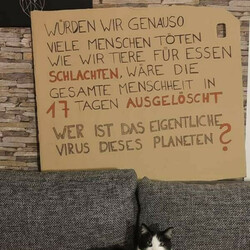 WÜRDEN WIR GENAUSO
VIELE MENSCHEN TÖTEN
WIE WIR TIERE FÜR ESSEN
SCHLACHTEN, WÄRE DIE
GESAMTE MENSCHHEIT IN
17 TAGEN AUSGELÖSCHT
WER IST DAS EIGENTLICHE
VIRUS DIESES PLANETEN?